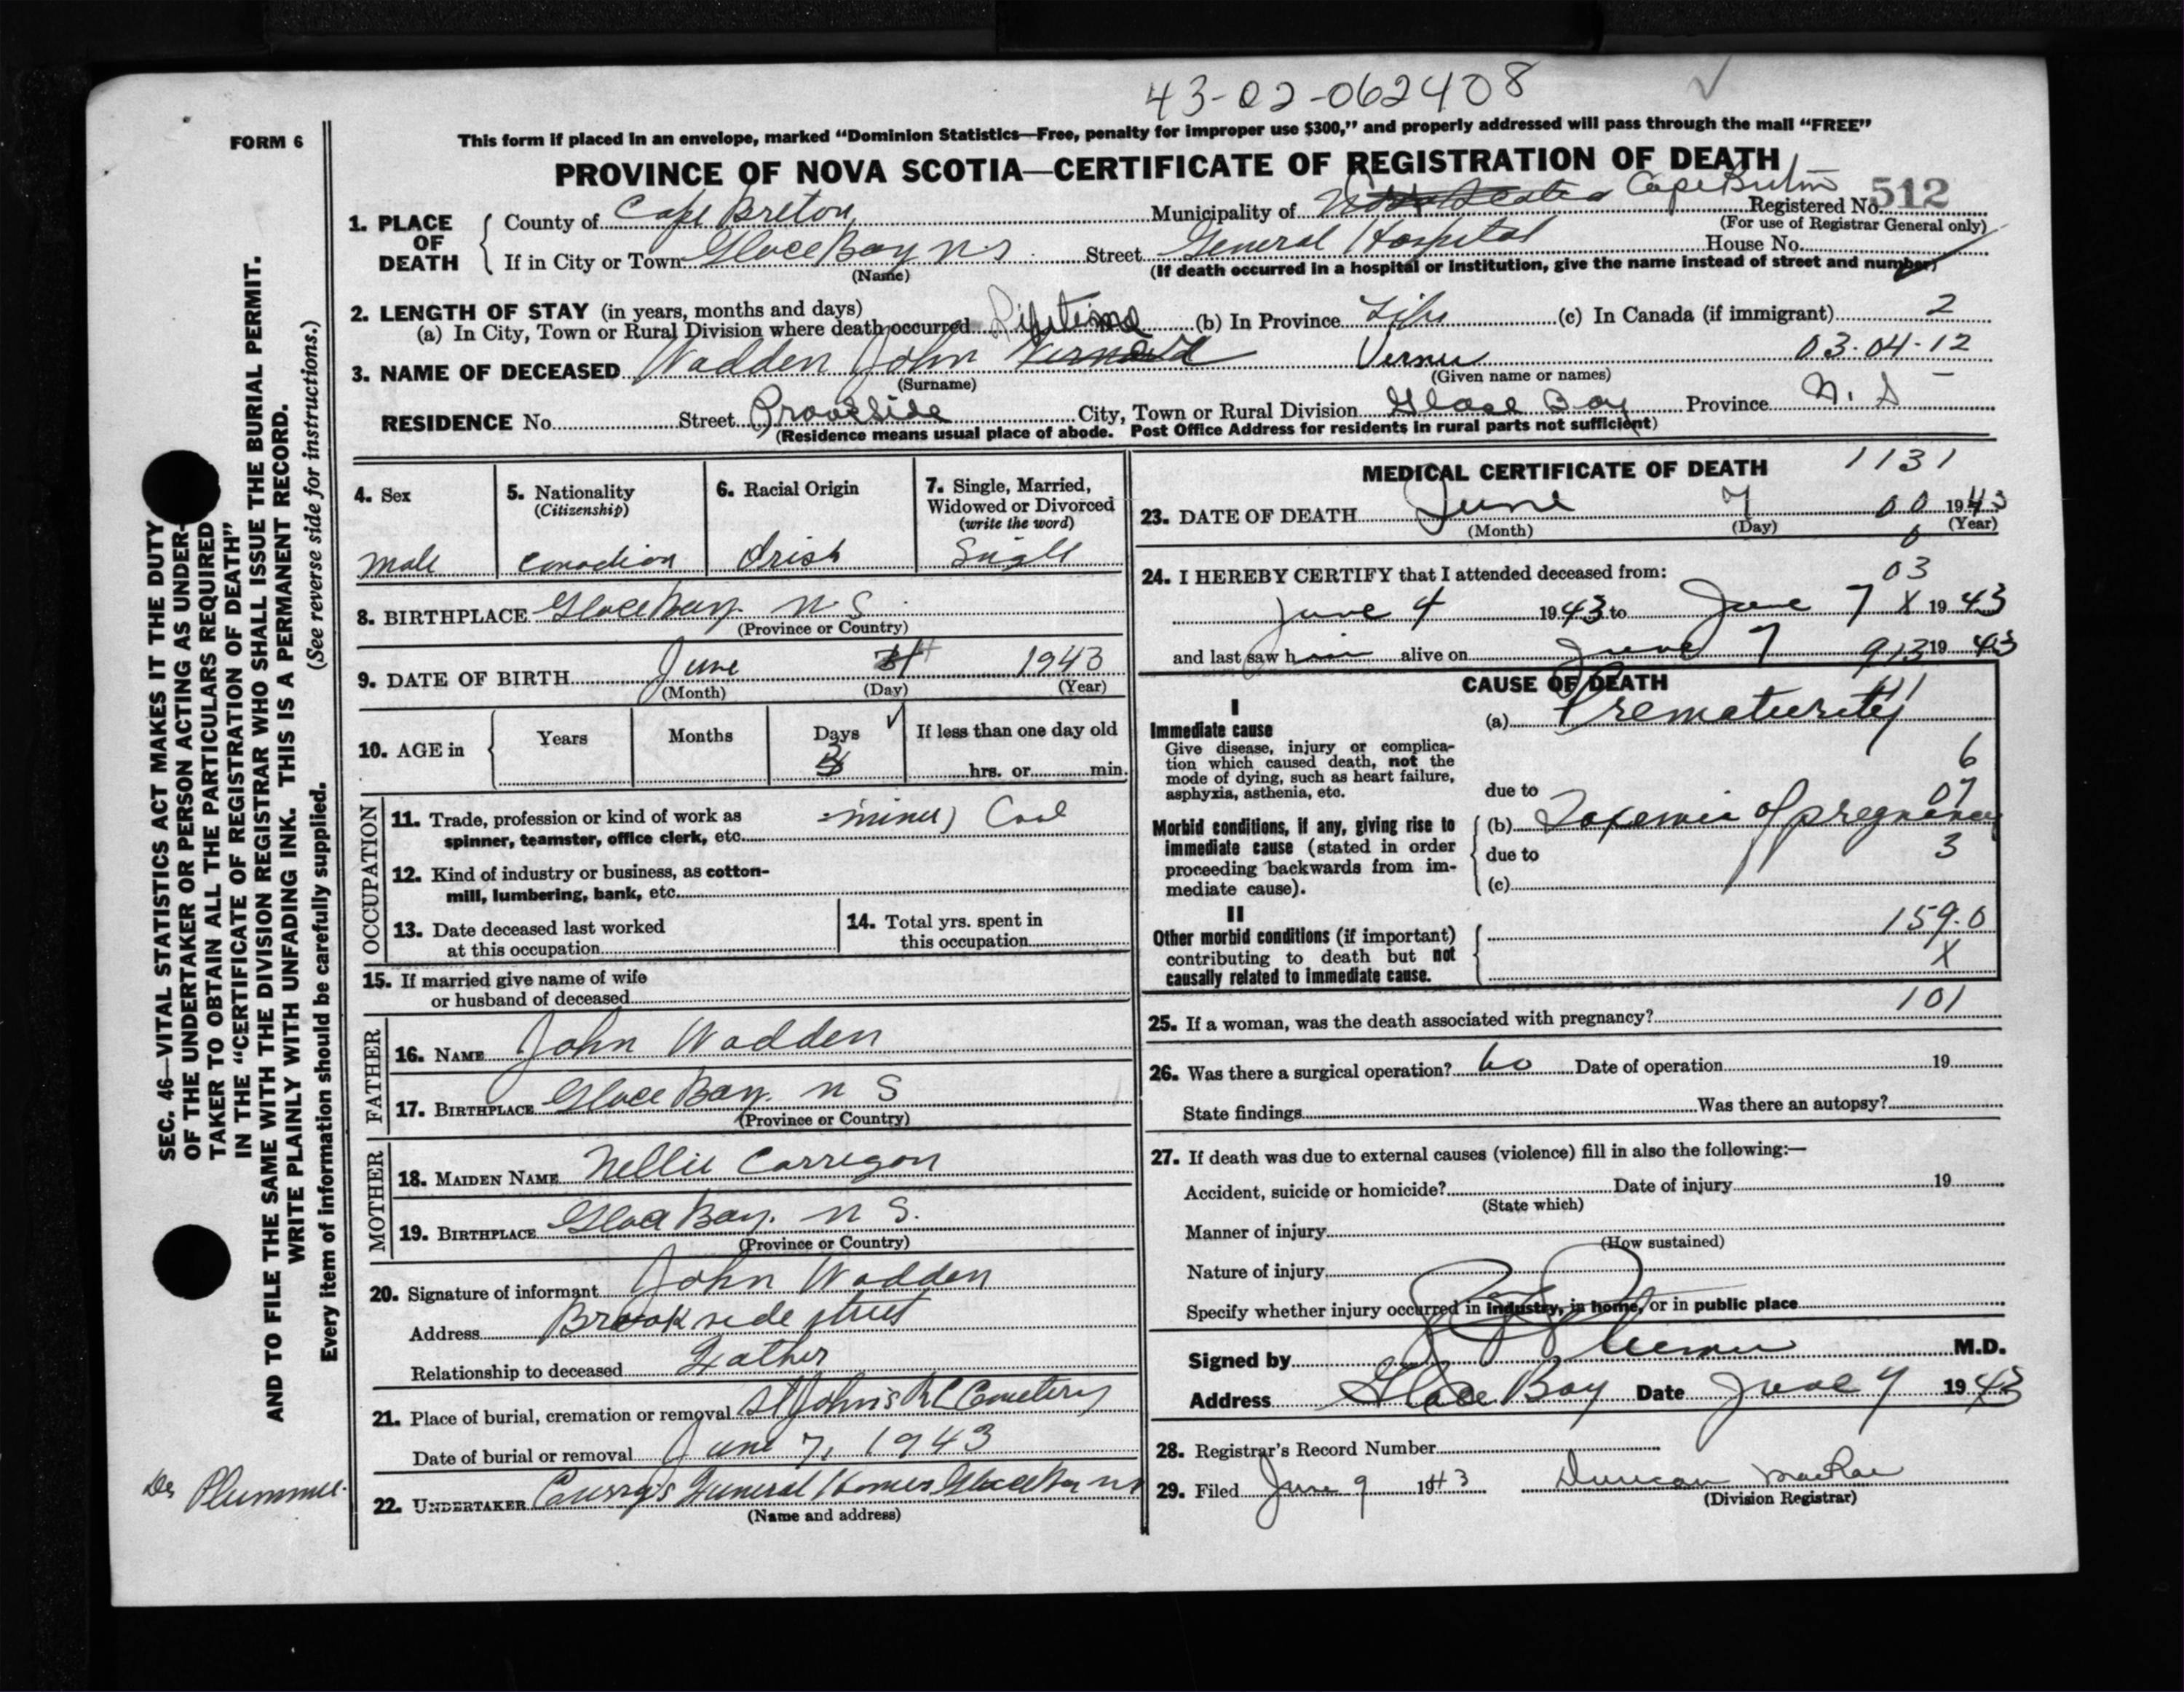 43-02-062408
FORM 6
This form if placed in an envelope, marked "Dominion Statistics—Free, penalty for improper use $300," and properly addressed will pass through the mail "FREE"
PROVINCE OF NOVA SCOTIA—CERTIFICATE OF REGISTRATION OF DEATH
1. PLACE OF DEATH
County of Cape Breton Municipality of Nova Scotia Cape Breton Registered No. 512
(For use of Registrar General only)
If in City or Town Glace Bay N.S Street General Hospital House No.
(Name) (If death occurred in a hospital or institution, give the name instead of street and number)
2. LENGTH OF STAY (in years, months and days)
(a) In City, Town or Rural Division where death occurred Lifetime (b) In Province Life (c) In Canada (if immigrant) 2
03-04-12
3. NAME OF DECEASED Wadden John
(Surname) (Given name or names)
RESIDENCE No. Street Brookside City, Town or Rural Division Glace Bay Province N. S
(Residence means usual place of abode. Post Office Address for residents in rural parts not sufficient)
4. Sex
male
5. Nationality
(Citizenship)
Canadian
6. Racial Origin
Irish
7. Single, Married,
Widowed or Divorced
(write the word)
Single
8. BIRTHPLACE Glace Bay. N S.
(Province or Country)
9. DATE OF BIRTH June 4 1943
(Month) (Day) (Year)
10. AGE in Years Months Days If less than one day old
3 hrs. or min.
OCCUPATION
11. Trade, profession or kind of work as
spinner, teamster, office clerk, etc. Coal
12. Kind of industry or business, as cotton-
mill, lumbering, bank, etc.
13. Date deceased last worked
at this occupation
14. Total yrs. spent in
this occupation
15. If married give name of wife
or husband of deceased
FATHER
16. NAME John Wadden
17. BIRTHPLACE Glace Bay. N S
(Province or Country)
MOTHER
18. MAIDEN NAME Nellie Carrigan
19. BIRTHPLACE Glace Bay. N S.
(Province or Country)
20. Signature of informant John Wadden
Address Brookside street
Relationship to deceased Father
21. Place of burial, cremation or removal St John's R C Cemetery
Date of burial or removal June 7, 1943
22. UNDERTAKER Curry's Funeral Homes Glace Bay NS
(Name and address)
MEDICAL CERTIFICATE OF DEATH 1131
23. DATE OF DEATH June 7 00 1943
(Month) (Day) (Year)
0
24. I HEREBY CERTIFY that I attended deceased from: 03
June 4 1943 to June 7 X 1943
and last saw him alive on June 7 913 1943
CAUSE OF DEATH
I
Immediate cause
Give disease, injury or complica-
tion which caused death, not the
mode of dying, such as heart failure,
asphyxia, asthenia, etc.
(a) Prematurity
6
due to 07
Morbid conditions, if any, giving rise to
immediate cause (stated in order
proceeding backwards from im-
mediate cause).
(b) Toxemia of pregnancy
due to 3
(c)
II
Other morbid conditions (if important)
contributing to death but not
causally related to immediate cause.
159.0
X
101
25. If a woman, was the death associated with pregnancy?
26. Was there a surgical operation? no Date of operation 19
State findings Was there an autopsy?
27. If death was due to external causes (violence) fill in also the following:—
Accident, suicide or homicide? Date of injury 19
(State which)
Manner of injury
(How sustained)
Nature of injury
Specify whether injury occurred in industry, in home, or in public place
Signed by M.D.
Address Glace Bay Date June 7 1943
28. Registrar's Record Number
29. Filed June 9 1943 Duncan MacRae
(Division Registrar)
SEC. 46—VITAL STATISTICS ACT MAKES IT THE DUTY
OF THE UNDERTAKER OR PERSON ACTING AS UNDER-
TAKER TO OBTAIN ALL THE PARTICULARS REQUIRED
IN THE "CERTIFICATE OF REGISTRATION OF DEATH"
AND TO FILE THE SAME WITH THE DIVISION REGISTRAR WHO SHALL ISSUE THE BURIAL PERMIT.
WRITE PLAINLY WITH UNFADING INK. THIS IS A PERMANENT RECORD.
Every item of information should be carefully supplied. (See reverse side for instructions.)
Dr Plummer.